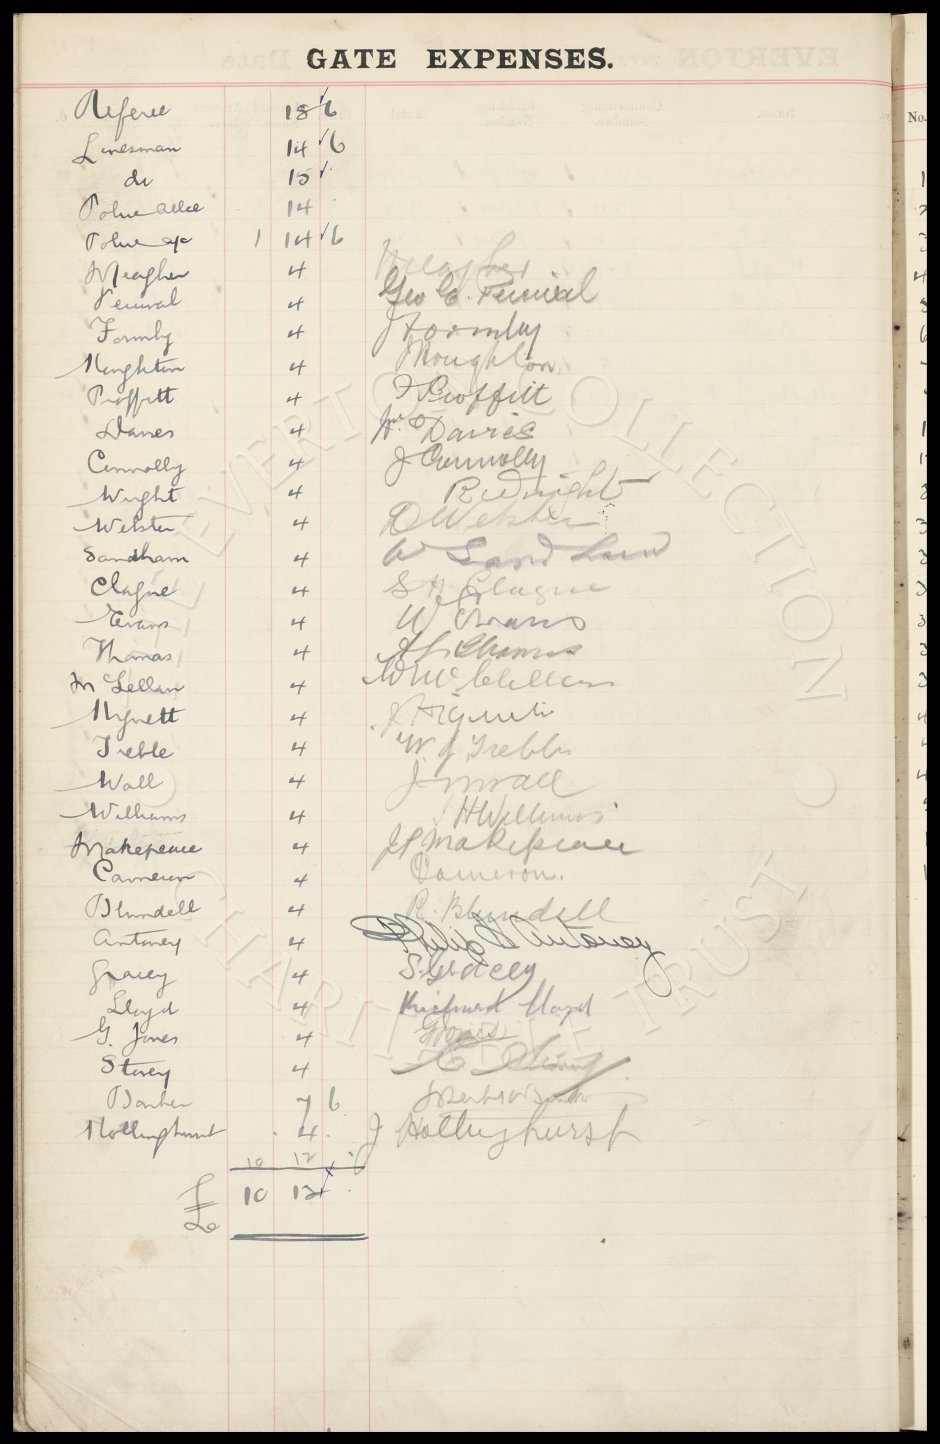 GATE EXPENSES.
Referee 18 6
Linesman 14 6
do 15
Police allce 14
Police ex 1 14 6
Meagher 4 Meagher
Percival 4 Geo C. Percival
Formby 4 J Formby
Houghton 4 Houghton
Proffitt 4 J Proffitt
Davies 4 Wm Davies
Connolly 4 J Connolly
Wright 4 R Wright
Webster 4 D Webster
Sandham 4 W Sandham
Clague 4 S H Clague
Evans 4 W Evans
Thomas 4 Thomas
McLellan 4 Wm McClellan
Hignett 4 J Hignett
Treble 4 W. J. Treble
Wall 4 J Wall
Williams 4 H Williams
Makepeace 4 J Makepeace
Cameron 4 Cameron.
Blundell 4 R. Blundell
Antoney 4 Philip H Antoney
Gracey 4 S. Gracey
Lloyd 4 Richard Lloyd
G. Jones 4 G Jones
Storey 4
Barker 7 6
Hollinghurst 4 J Hollinghurst
10 12
£ 10 12
No.
THE EVERTON COLLECTION CHARITABLE TRUST